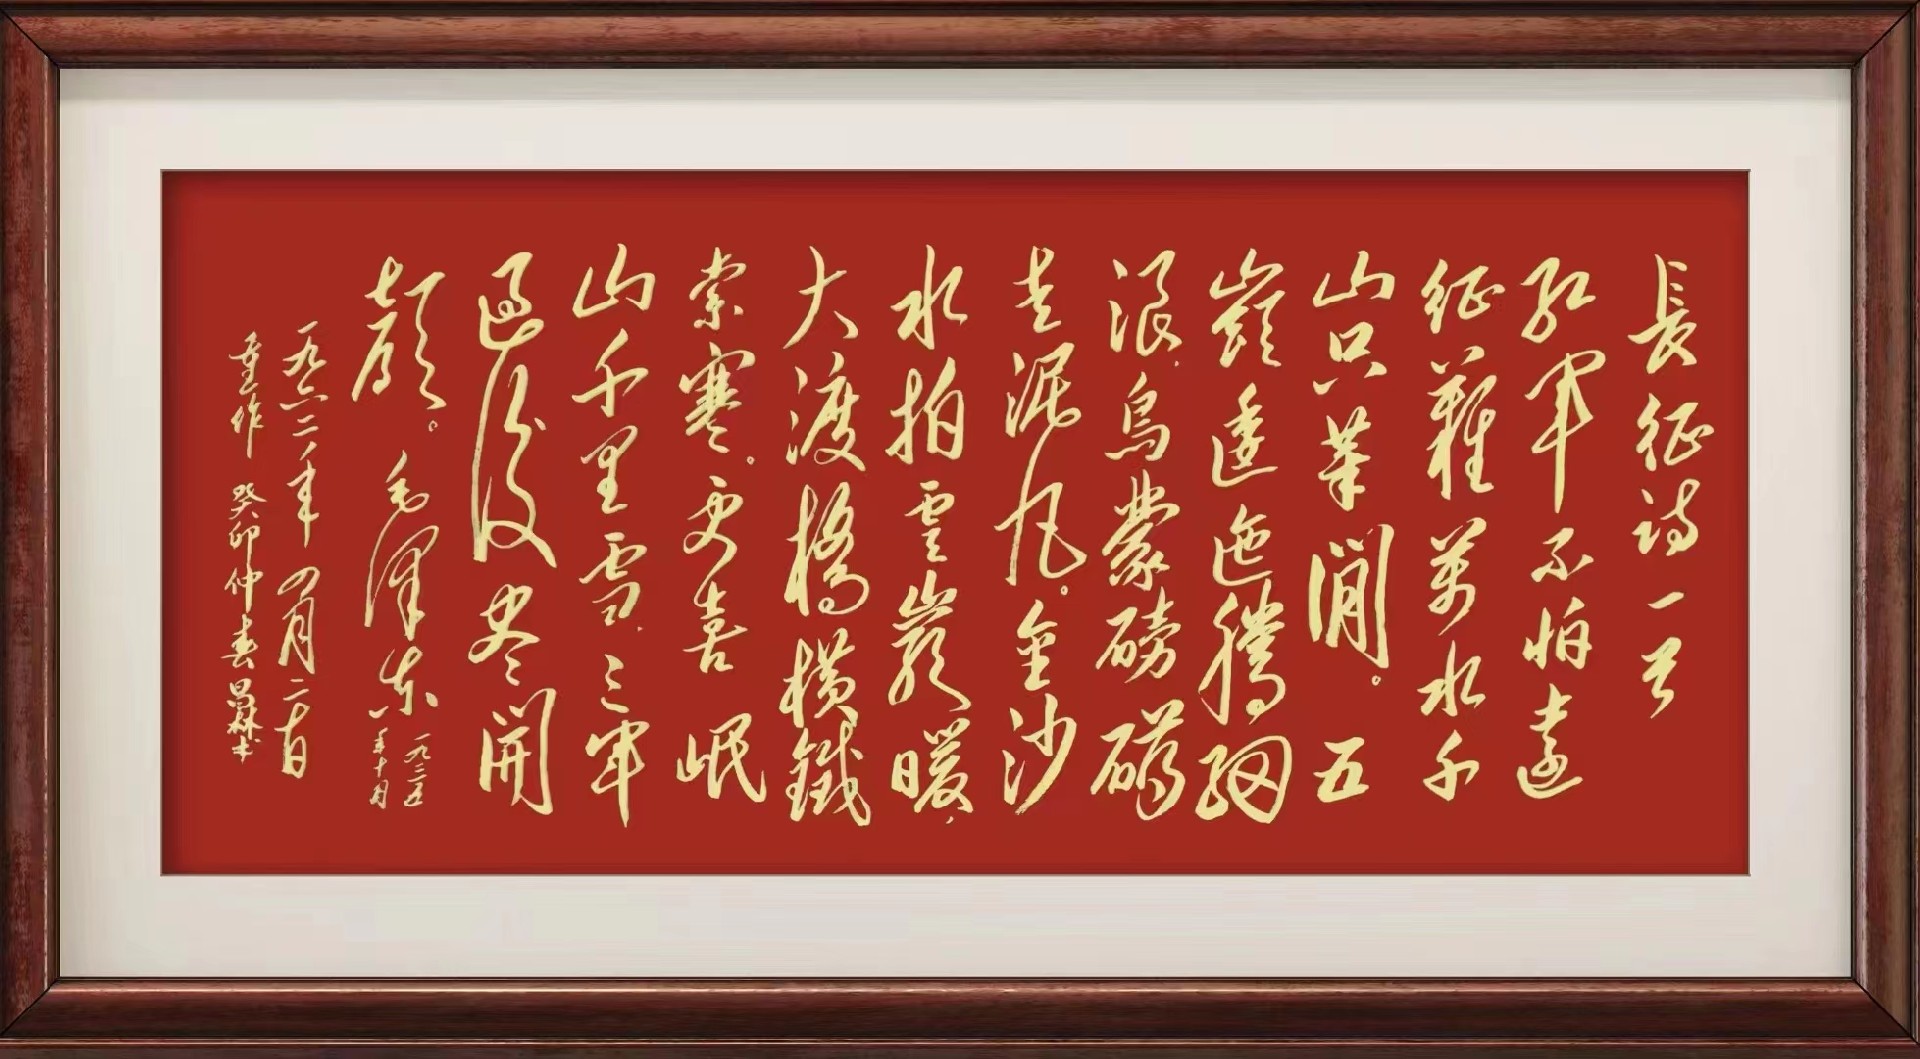 長征诗一首
红軍不怕遠
征難萬水千
山只等閒。五
嶺逶迤腾细
浪,烏蒙磅礴
走泥丸。金沙
水拍雲巖暖,
大渡橋横鐵
索寒。更喜岷
山千里雪,三軍
過後尽開
颜。毛泽东
一九三五
年十月
一九六二年四月二十日
重作 癸卯仲春昌林书